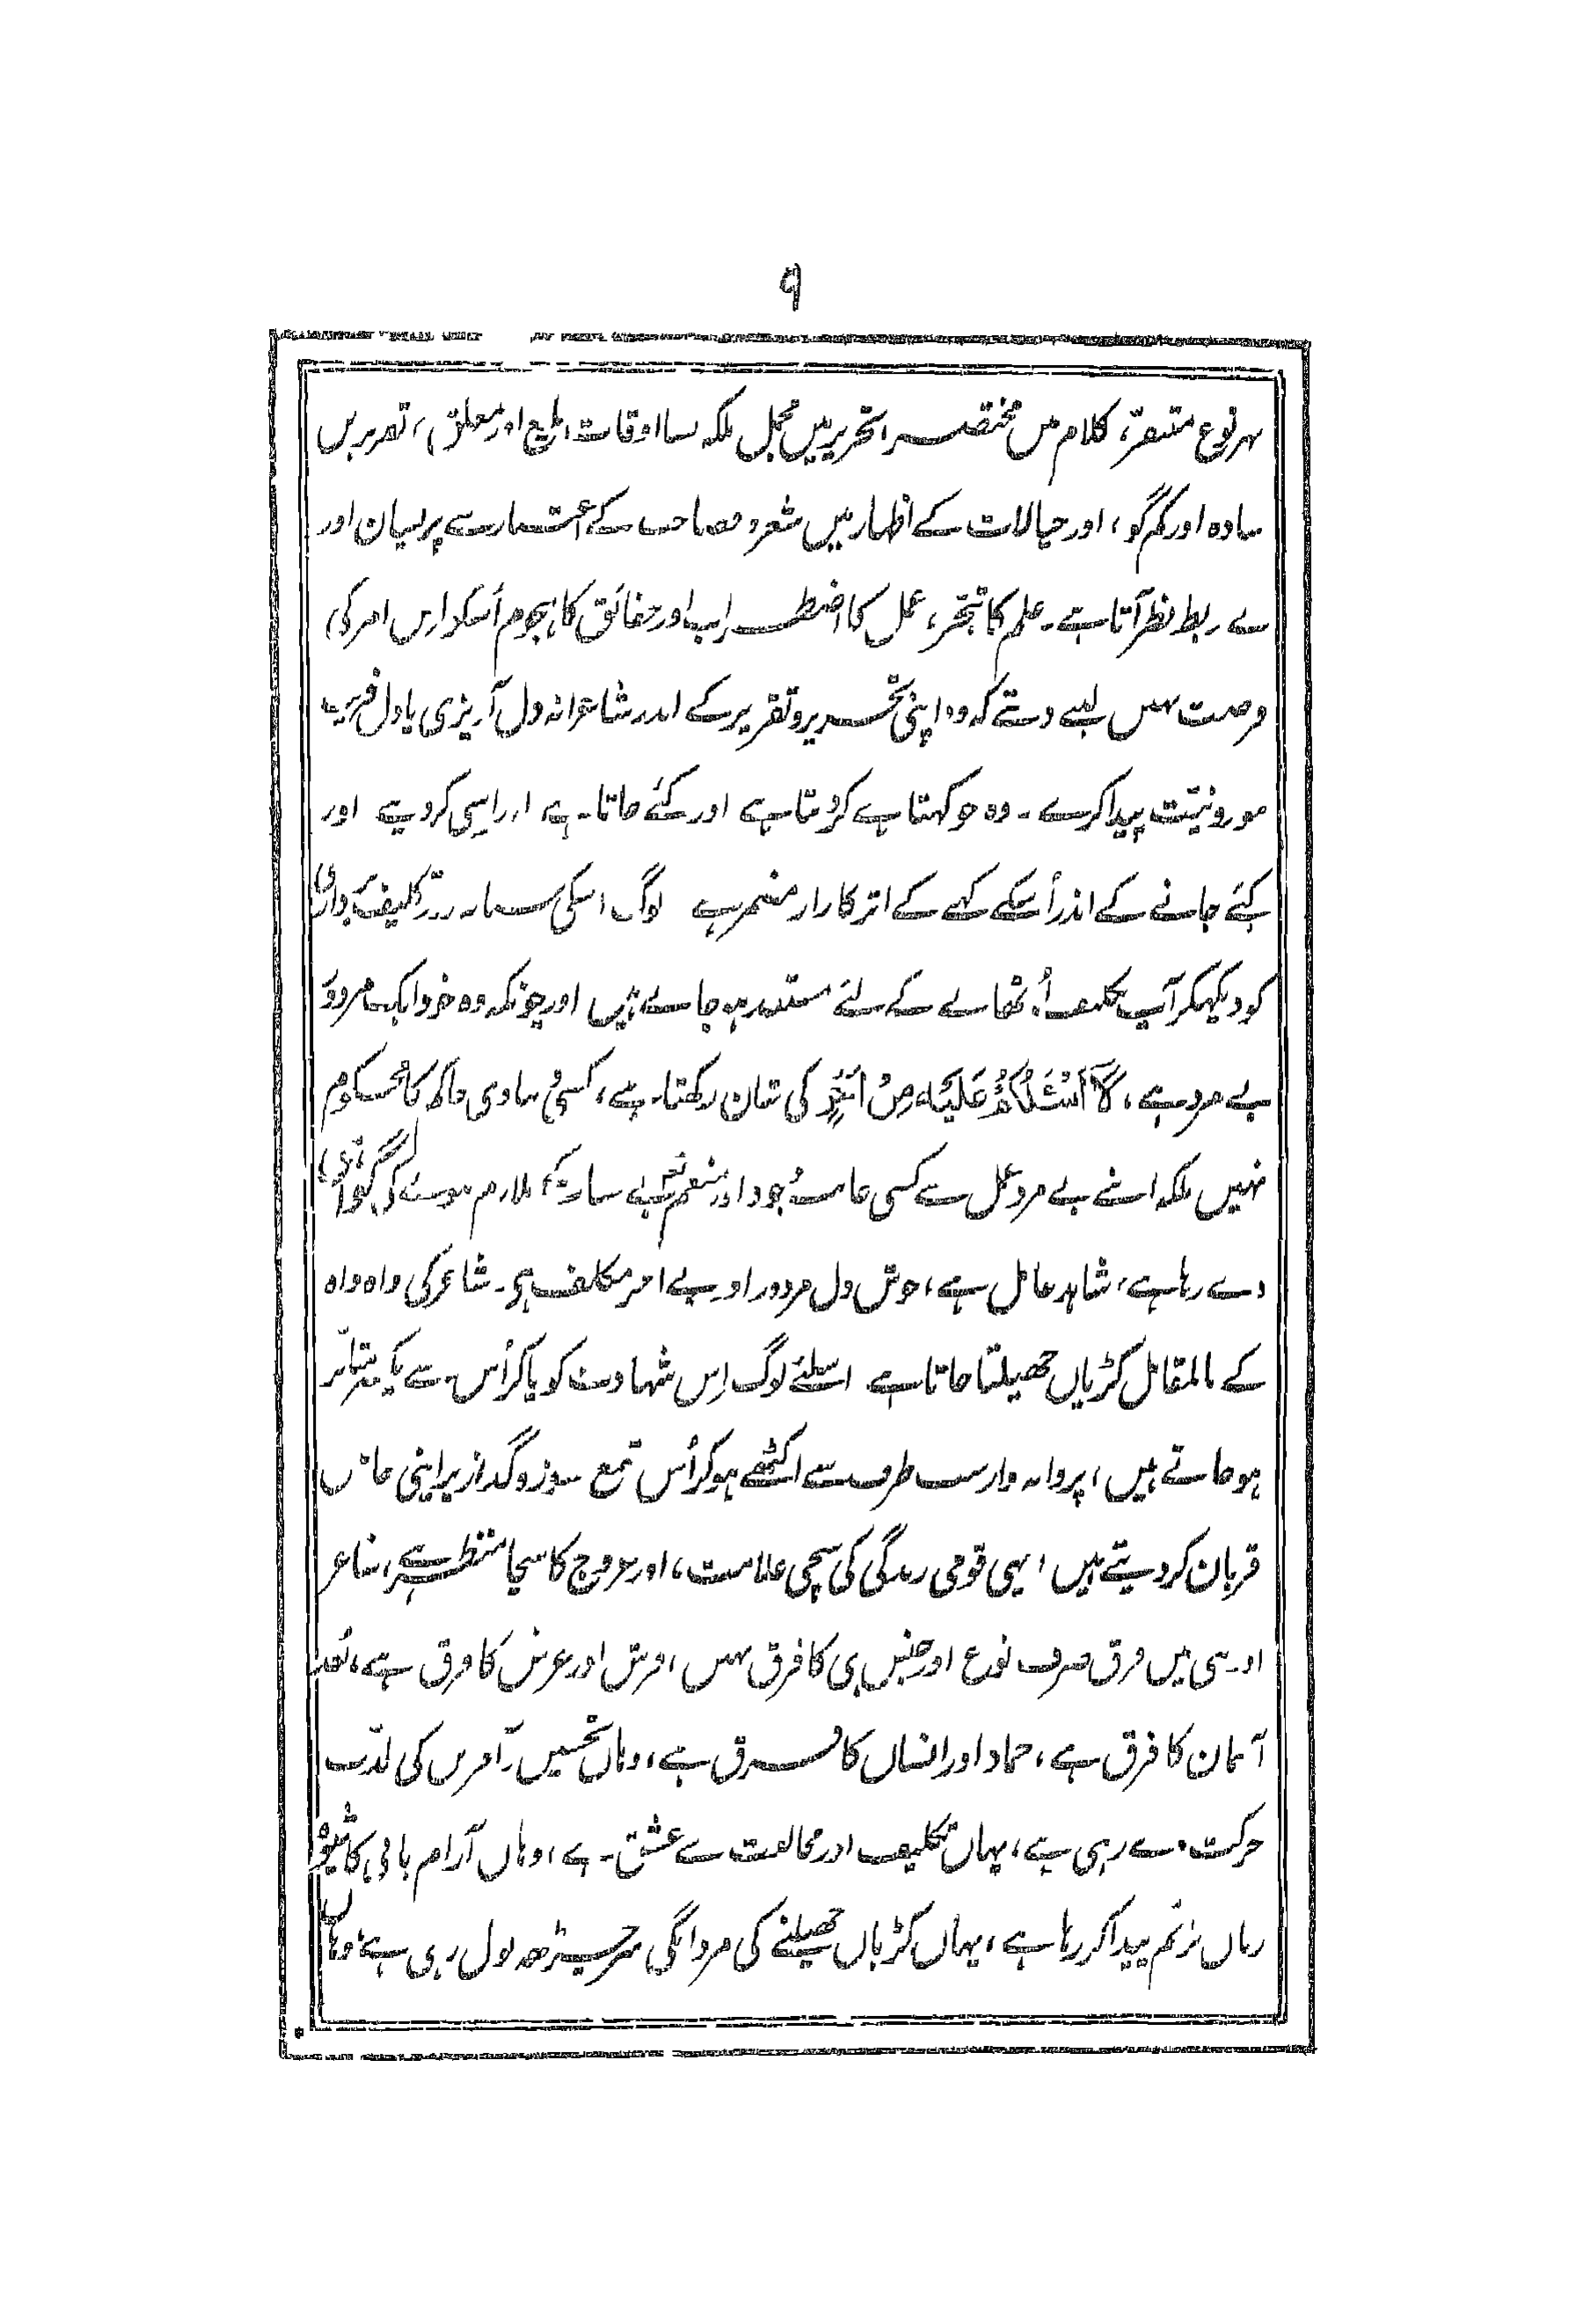 ۹
بہر نوع متنفر، کلام میں مختصر، تحریر میں مجمل بلکہ بسا اوقات اور مغلق، تقریر میں
سادہ اور کم گو، اور خیالات کے اظہار میں شعر و فصاحت کے اعتبار سے پریشان اور
بے ربط نظر آتا ہے۔ علم کا تبحّر، عمل کا اضطراب اور حقائق کا ہجوم اُسکو اِس امر کی
فرصت نہیں لینے دیتے کہ وہ اپنی تحریر و تقریر کے اندر شاعرانہ دل آویزی یا دل فریب
موزونیّت پیدا کرے۔ وہ جو کہتا ہے کر دیتا ہے اور کئے جاتا ہے، اور اسی کر دینے اور
کئے جانے کے اندر اُسکے کہے کے اثر کا راز مضمر ہے لوگ اسکی
کو دیکھکر آپ تکلیف اُٹھانے کے لئے مستعد ہو جاتے ہیں اور چونکہ وہ خود ایک مزدور
بے مزد ہے، لَا اَسْئَلُكُمْ عَلَيْهِ مِنْ اَجْرٍ کی شان رکھتا ہے، کسی دنیاوی حاکم کا محکوم
نہیں بلکہ اپنے بے مزد عمل سے کسی اور منعم کے ملازم ہونے کی گواہی
دے رہا ہے، شاہد عادل ہے، خوش دل مزدور اور بے اجر مکلف ہے۔ شاعر کی واہ واہ
کے بالمقابل کڑیاں جھیلتا جاتا ہے اسلئے لوگ اِس شہادت کو پا کر اُس سے یکسر متاثر
ہو جاتے ہیں، پروانہ وار ہر طرف سے اکٹھے ہو کر اُس شمع سوز و گداز پر اپنی جانیں
قربان کر دیتے ہیں، یہی قومی زندگی کی سچی علامت، اور عروج کا سچا منظر ہے، شاعر
اور نبی میں فرق صرف نوع اور جنس ہی کا فرق نہیں، فرش اور عرش کا فرق ہے،
آسمان کا فرق ہے، جماد اور انسان کا فرق ہے، وہاں تحسین و آفریں کی لذّت
حرکت دے رہی ہے، یہاں تکلیف اور مخالفت سے عشق ہے، وہاں آرام یافتہ کا
زباں ترنّم پیدا کر رہا ہے، یہاں کڑیاں جھیلنے کی مردانگی سر چڑھ بول رہی ہے، وہاں